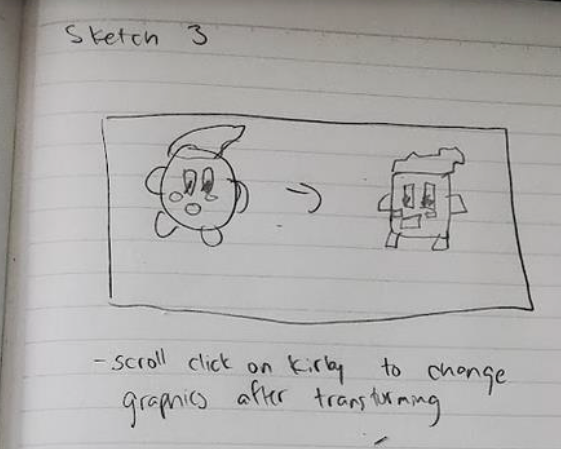 Sketch 3
- scroll click on Kirby to change
graphics after transforming